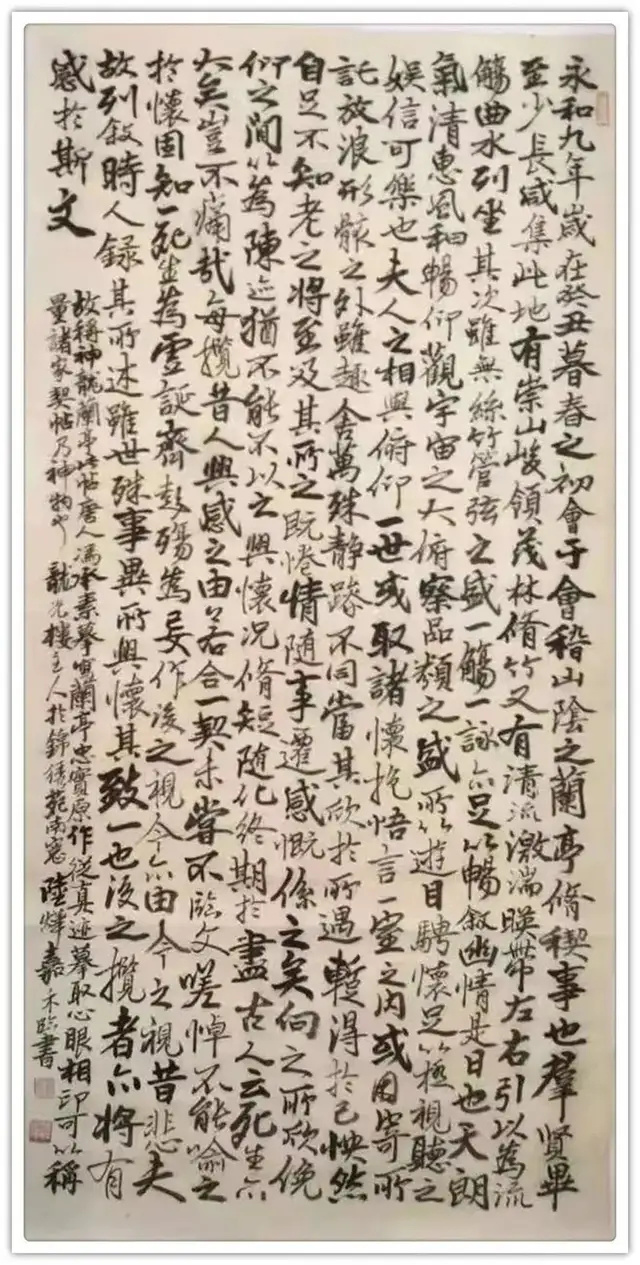 永和九年歲在癸丑暮春之初會于會稽山陰之蘭亭脩稧事也羣賢畢
至少長咸集此地有崇山峻領茂林脩竹又有清流激湍暎帶左右引以為流
觴曲水列坐其次雖無絲竹管弦之盛一觴一詠亦足以暢敘幽情是日也天朗
氣清惠風和暢仰觀宇宙之大俯察品類之盛所以遊目騁懷足以極視聽之
娛信可樂也夫人之相與俯仰一世或取諸懷抱悟言一室之內或因寄所
託放浪形骸之外雖趣舍萬殊靜躁不同當其欣於所遇蹔得於己怏然
自足不知老之將至及其所之既惓情隨事遷感慨係之矣向之所欣俛
仰之間以為陳迹猶不能不以之興懷況脩短隨化終期於盡古人云死生亦
大矣豈不痛哉每攬昔人興感之由若合一契未嘗不臨文嗟悼不能喻之
於懷固知一死生為虛誕齊彭殤為妄作後之視今亦由今之視昔悲夫
故列敘時人錄其所述雖世殊事異所以興懷其致一也後之攬者亦將有
感於斯文
故稱神龍蘭亭此帖唐人馮承素摹寫蘭亭忠實原作從真迹摹取心眼相印可以稱
量諸家契帖乃神物也 龍光樓主人於錦绣苑南窗 陸燁 嘉木臨書